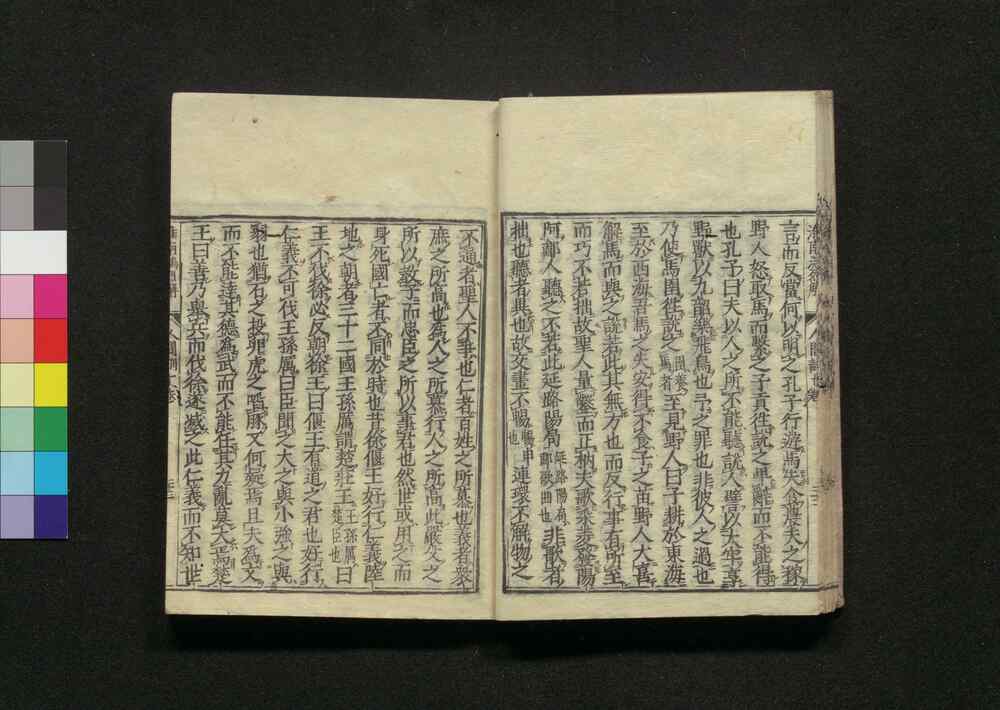 言而反當何以明之孔子行遊馬失食農夫之稼
野人怒取馬而繫之子貢往說之卑辭而不能得
也孔子曰夫以人之所不能聽說人譬以大牢享
野獸以九韶樂飛鳥也予之罪也非彼人之過也
乃使馬圉往說之圉養馬者至見野人曰子耕於東海
至於西海吾馬之失安得不食子之苗野人大喜
解馬而與之說若此其無方也而反行事有所至
而巧不若拙故聖人量鑿而正枘夫歌采菱發陽
阿鄙人聽之不若此延路陽局延路陽局鄙歌曲也非歌者
拙也聽者異也故交畫不暢暢申也連環不解物之
不通者聖人不爭也仁者百姓之所慕也義者衆
庶之所高也爲人之所慕行人之所高此嚴父之
所以敎子而忠臣之所以事君也然世或用之而
身死國亡者不同於時也昔徐偃王好行仁義陸
地之朝者三十二國王孫厲謂楚莊王王孫厲楚臣也曰
王不伐徐必反朝徐王曰偃王有道之君也好行
仁義不可伐王孫厲曰臣聞之大之與小強之與
弱也猶石之投卵虎之啗豚又何疑焉且夫爲文
而不能達其德爲武而不能任其力亂莫大焉楚
王曰善乃舉兵而伐徐遂滅之此仁義而不知世